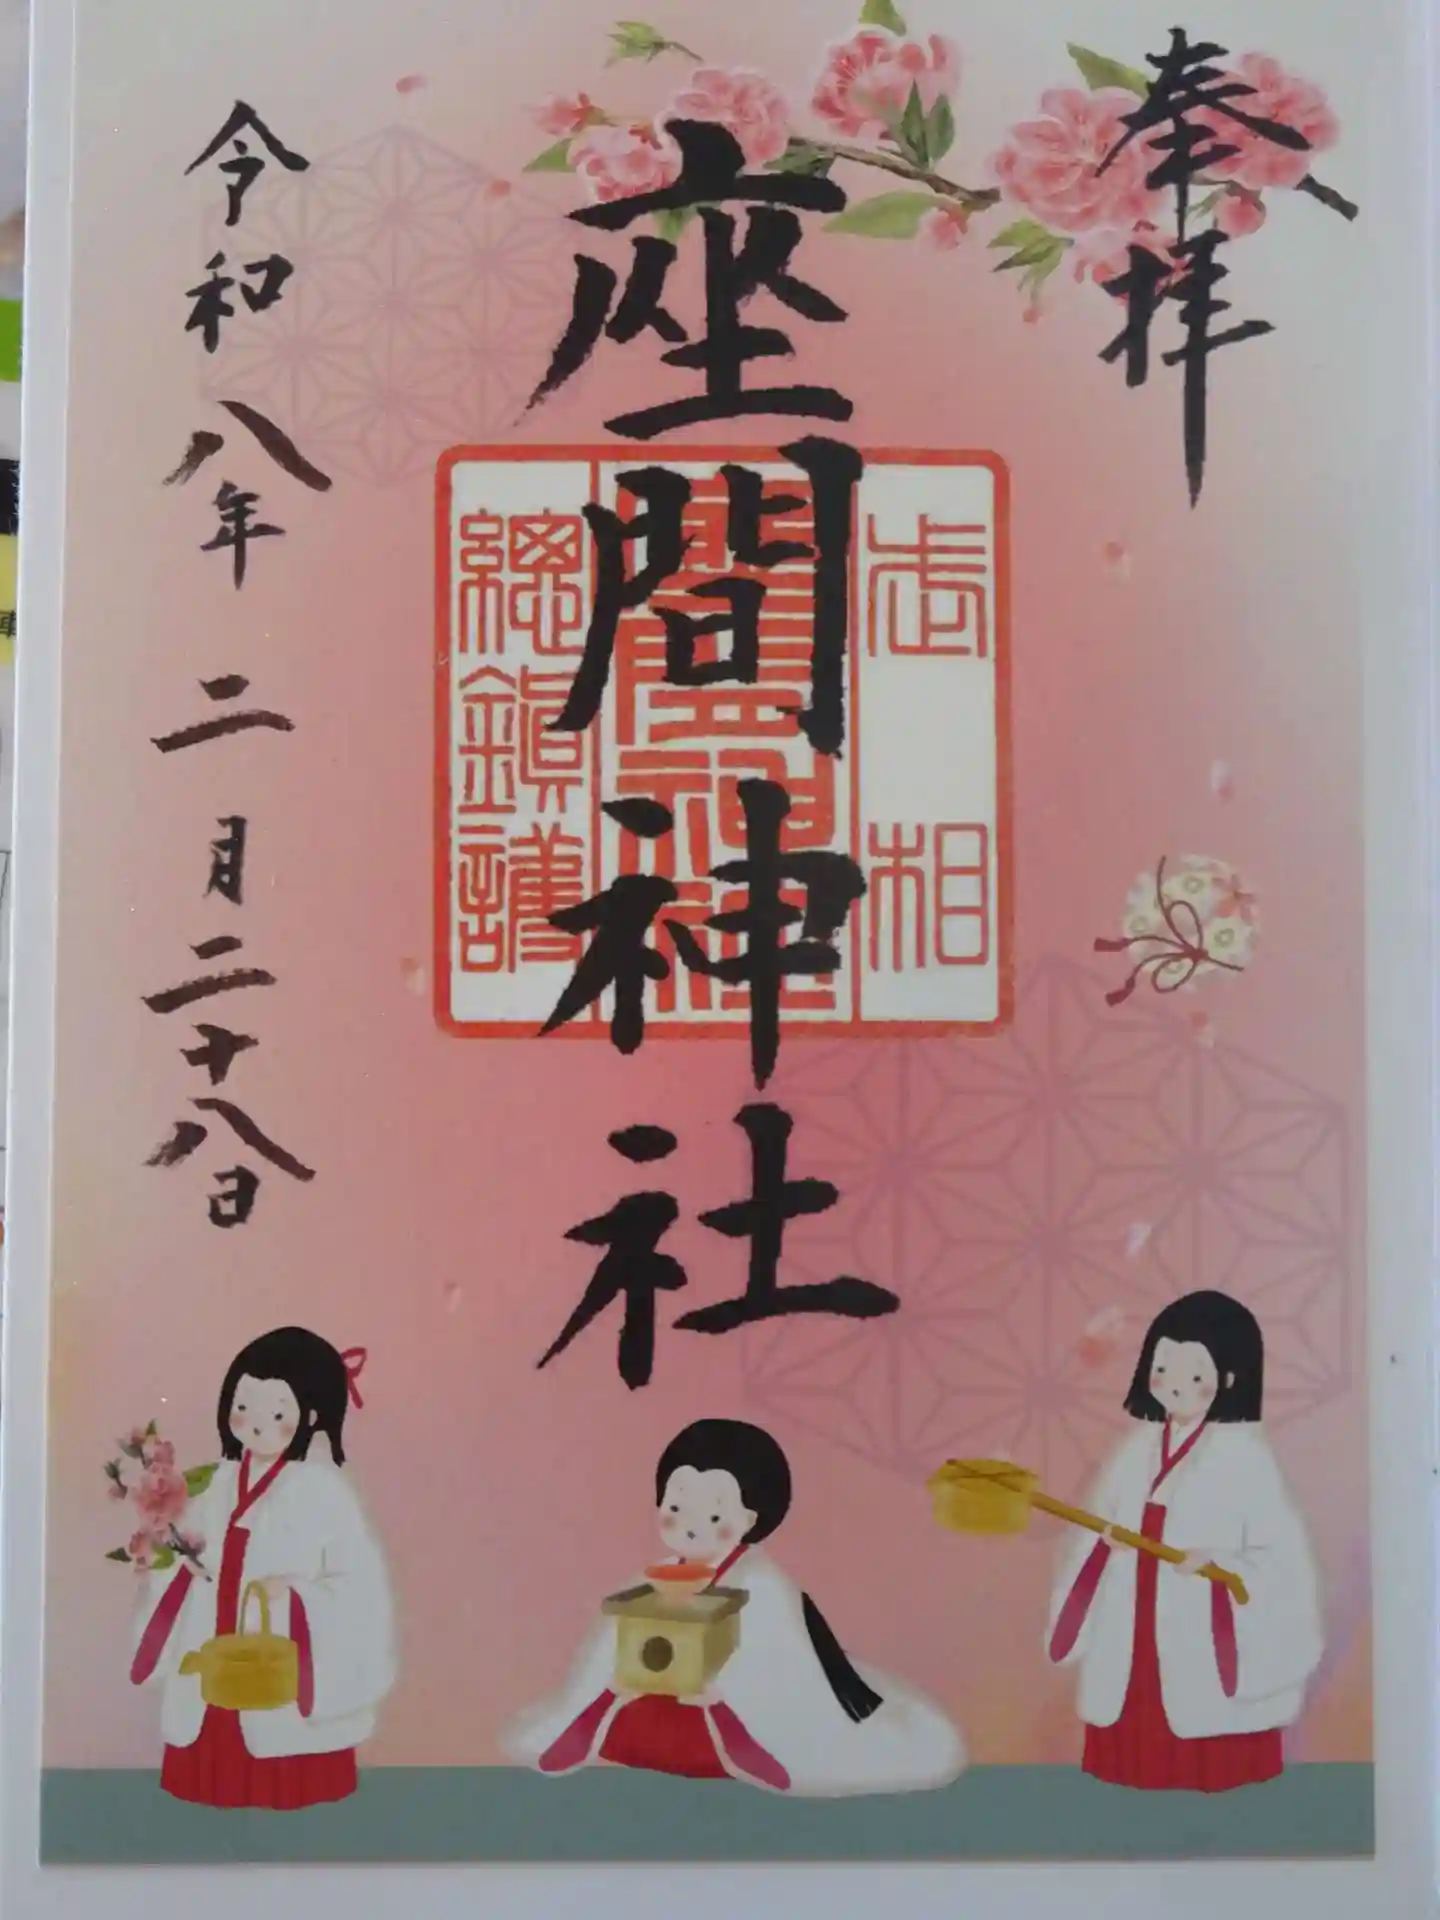 奉拝
相武
座間神社
總鎮護
座間神社
令和八年二月二十八日